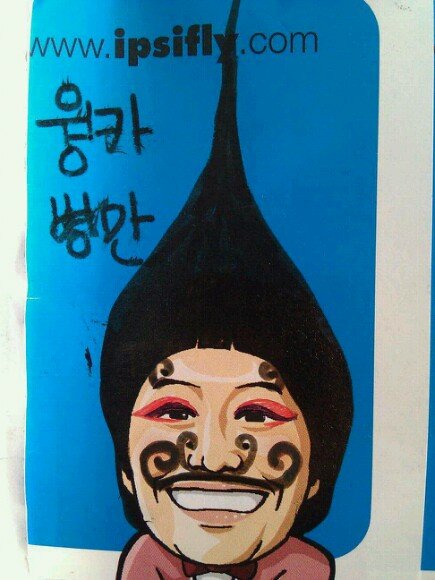 www.ipsifly.com
웡카
병만